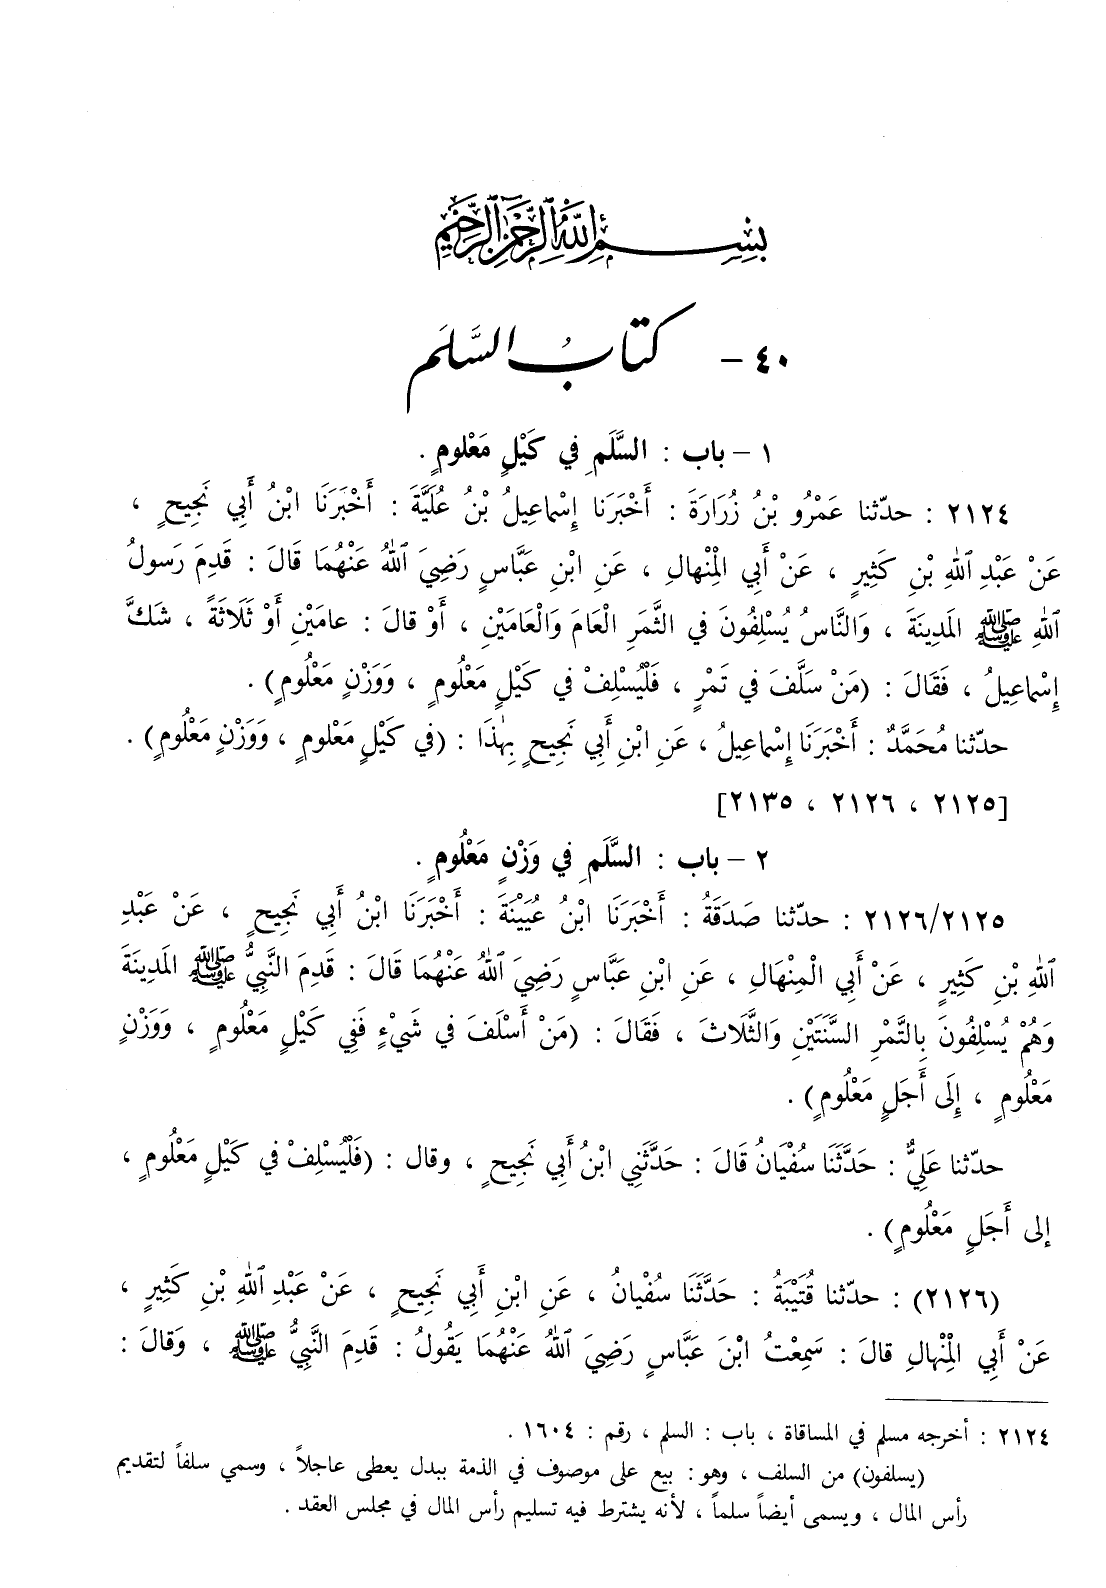 بِسْمِ اللهِ الرَّحْمٰنِ الرَّحِيمِ
٤٠ - كتابُ السَّلَم
١ - باب : السَّلَمِ في كَيْلٍ مَعْلُومٍ .
٢١٢٤ : حدّثنا عَمْرُو بْنُ زُرَارَةَ : أَخْبَرَنَا إِسْماعِيلُ بْنُ عُلَيَّةَ : أَخْبَرَنَا ابْنُ أَبِي نَجِيحٍ ،
عَنْ عَبْدِ ٱللهِ بْنِ كَثِيرٍ ، عَنْ أَبِي الْمِنْهالِ ، عَنِ ابْنِ عَبَّاسٍ رَضِيَ ٱللهُ عَنْهُمَا قالَ : قَدِمَ رَسولُ
ٱللهِ ﷺ المَدِينَةَ ، وَالنَّاسُ يُسْلِفُونَ في الثَّمَرِ الْعَامَ وَالْعَامَيْنِ ، أَوْ قالَ : عامَيْنِ أَوْ ثَلَاثَةً ، شَكَّ
إِسْماعِيلُ ، فَقَالَ : (مَنْ سَلَّفَ في تَمْرٍ ، فَلْيُسْلِفْ في كَيْلٍ مَعْلُومٍ ، وَوَزْنٍ مَعْلُومٍ) .
حدّثنا مُحَمَّدٌ : أَخْبَرَنَا إِسْماعِيلُ ، عَنِ ابْنِ أَبِي نَجِيحٍ بِهٰذَا : (في كَيْلٍ مَعْلومٍ ، وَوَزْنٍ مَعْلُومٍ) .
[٢١٢٥ ، ٢١٢٦ ، ٢١٣٥]
٢ - باب : السَّلَمِ في وَزْنٍ مَعْلُومٍ .
٢١٢٦/٢١٢٥ : حدّثنا صَدَقَةُ : أَخْبَرَنَا ابْنُ عُيَيْنَةَ : أَخْبَرَنَا ابْنُ أَبِي نَجِيحٍ ، عَنْ عَبْدِ
ٱللهِ بْنِ كَثِيرٍ ، عَنْ أَبِي الْمِنْهَالِ ، عَنِ ابْنِ عَبَّاسٍ رَضِيَ ٱللهُ عَنْهُمَا قَالَ : قَدِمَ النَّبِيُّ ﷺ المَدِينَةَ
وَهُمْ يُسْلِفُونَ بِالتَّمْرِ السَّنَتَيْنِ وَالثَّلَاثَ ، فَقَالَ : (مَنْ أَسْلَفَ في شَيْءٍ فَفِي كَيْلٍ مَعْلُومٍ ، وَوَزْنٍ
مَعْلُومٍ ، إِلَى أَجَلٍ مَعْلُومٍ) .
حدّثنا عَلِيٌّ : حَدَّثَنَا سُفْيَانُ قَالَ : حَدَّثَنِي ابْنُ أَبِي نَجِيحٍ ، وقال : (فَلْيُسْلِفْ في كَيْلٍ مَعْلُومٍ ،
إلى أَجَلٍ مَعْلُومٍ) .
(٢١٢٦) : حدّثنا قُتَيْبَةُ : حَدَّثَنَا سُفْيانُ ، عَنِ ابْنِ أَبِي نَجِيحٍ ، عَنْ عَبْدِ ٱللهِ بْنِ كَثِيرٍ ،
عَنْ أَبِي الْمِنْهالِ قالَ : سَمِعْتُ ابْنَ عَبَّاسٍ رَضِيَ ٱللهُ عَنْهُمَا يَقُولُ : قَدِمَ النَّبِيُّ ﷺ ، وَقالَ :
٢١٢٤ : أخرجه مسلم في المساقاة ، باب : السلم ، رقم : ١٦٠٤ .
(يسلفون) من السلف ، وهو : بيع على موصوف في الذمة ببدل يعطى عاجلاً ، وسمي سلفاً لتقديم
رأس المال ، ويسمى أيضاً سلماً ، لأنه يشترط فيه تسليم رأس المال في مجلس العقد .